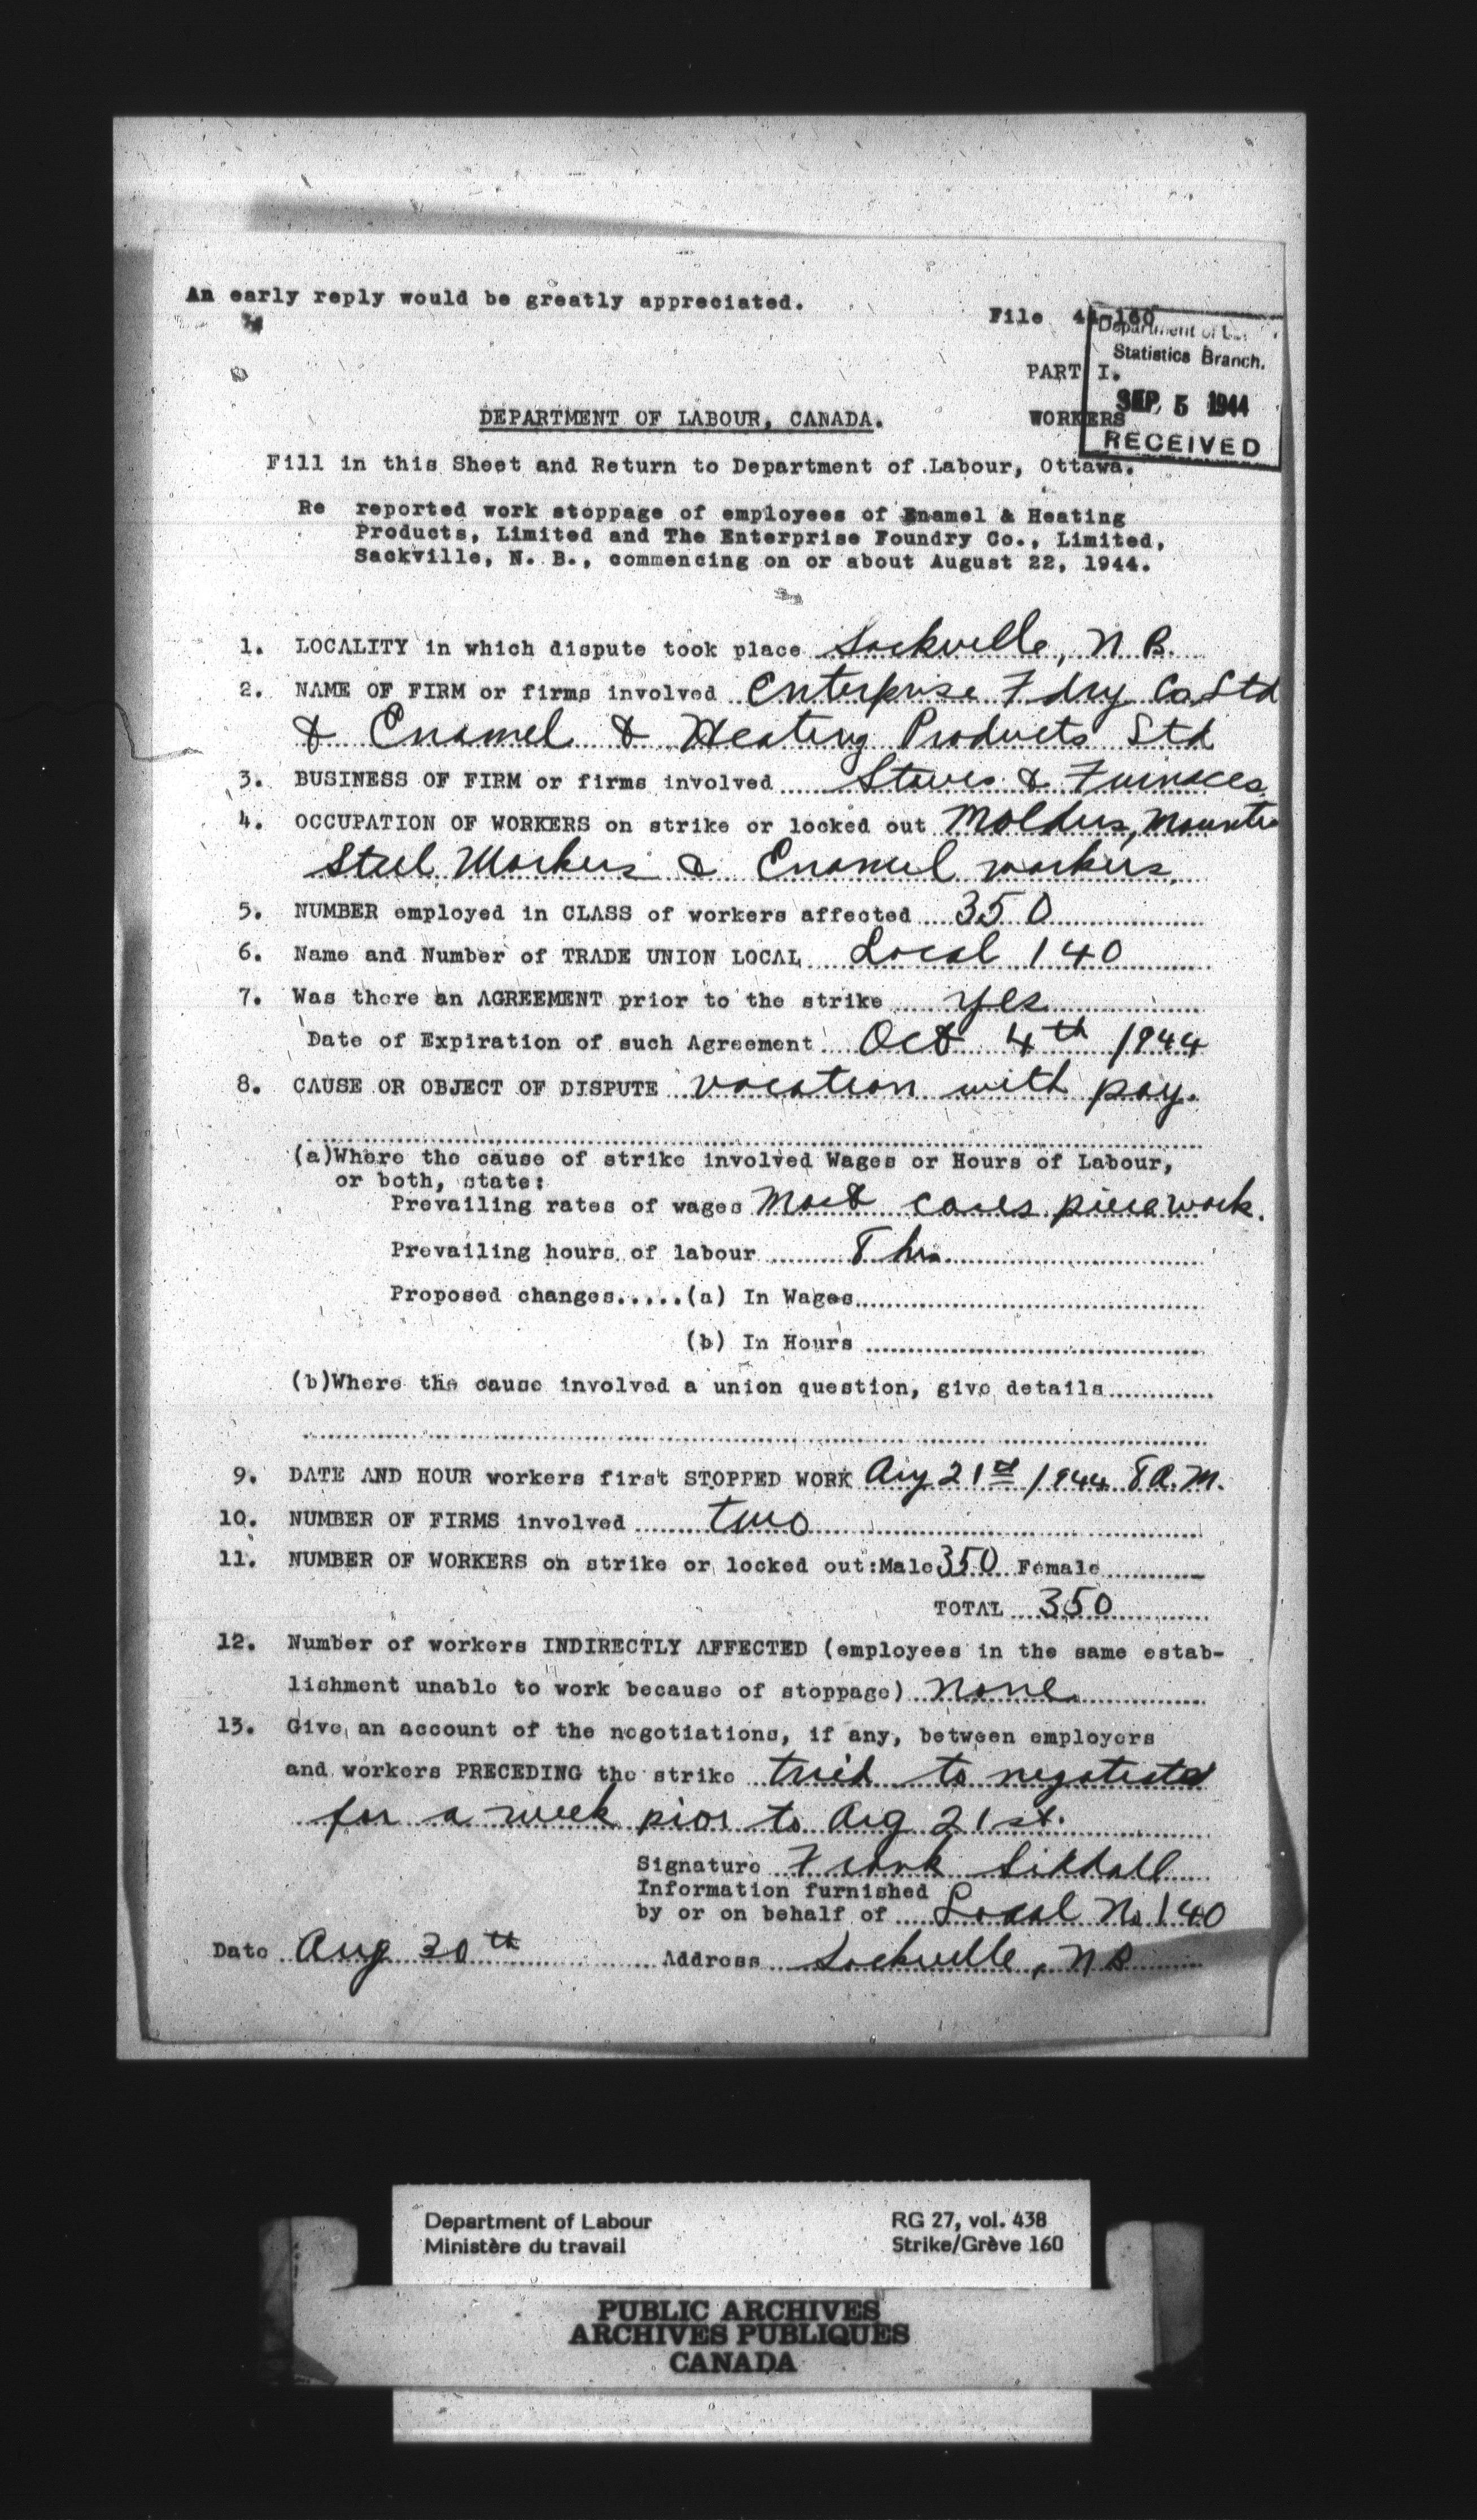 An early reply would be greatly appreciated.
File 44-160
Department of
Statistics Branch.
SEP 5 1944
RECEIVED
PART I.
WORKERS
DEPARTMENT OF LABOUR, CANADA.
Fill in this Sheet and Return to Department of Labour, Ottawa.
Re reported work stoppage of employees of Enamel & Heating
Products, Limited and The Enterprise Foundry Co., Limited,
Sackville, N. B., commencing on or about August 22, 1944.
1. LOCALITY in which dispute took place Sackville, N.B.
2. NAME OF FIRM or firms involved Enterprise Fdry Co Ltd
& Enamel & Heating Products Ltd
3. BUSINESS OF FIRM or firms involved Stoves & Furnaces
4. OCCUPATION OF WORKERS on strike or locked out Molders, Mounters
Steel Workers & Enamel workers.
5. NUMBER employed in CLASS of workers affected 350
6. Name and Number of TRADE UNION LOCAL Local 140
7. Was there an AGREEMENT prior to the strike yes
Date of Expiration of such Agreement Oct 4th 1944
8. CAUSE OR OBJECT OF DISPUTE vacation with pay.
(a)Where the cause of strike involved Wages or Hours of Labour,
or both, state:
Prevailing rates of wages most cases piece work.
Prevailing hours of labour 8 hrs.
Proposed changes.....(a) In Wages
(b) In Hours
(b)Where the cause involved a union question, give details
9. DATE AND HOUR workers first STOPPED WORK Aug 21st 1944 8 A.M.
10. NUMBER OF FIRMS involved two
11. NUMBER OF WORKERS on strike or locked out:Male 350 Female
TOTAL 350
12. Number of workers INDIRECTLY AFFECTED (employees in the same estab-
lishment unable to work because of stoppage) none
13. Give an account of the negotiations, if any, between employers
and workers PRECEDING the strike tried to negotiated
for a week pior to Aug 21st.
Signature Frank Siddall
Information furnished
by or on behalf of Local No 140
Date Aug 30th Address Sackville, NB
Department of Labour
Ministère du travail
RG 27, vol. 438
Strike/Grève 160
PUBLIC ARCHIVES
ARCHIVES PUBLIQUES
CANADA